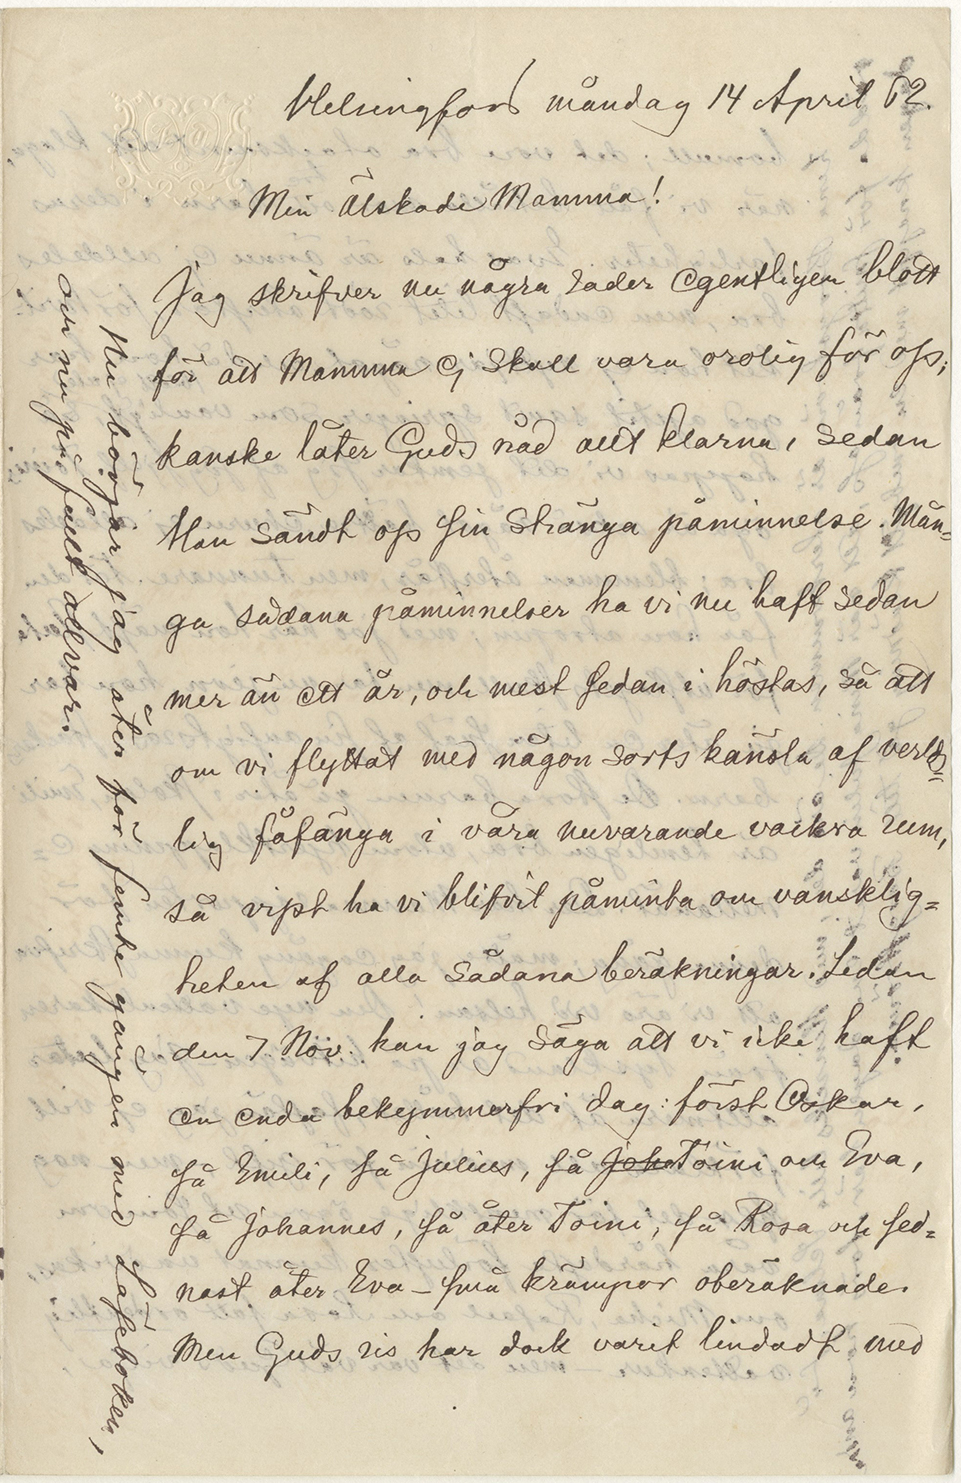 Helsingfors måndag 14 April 62.
Min älskade Mamma!
Jag skrifver nu några rader egentligen blott
för att Mamma ej skall vara orolig för oss;
kanske låter Guds nåd allt klarna, sedan
Han sändt oss sin stränga påminnelse. Mån-
ga sådana påminnelser ha vi nu haft sedan
mer än ett år, och mest sedan i höstas, så att
om vi flyttat med någon sorts känsla af verlds=
lig fåfänga i våra nuvarande vackra rum,
så visst ha vi blifvit påminta om vansklig=
heten af alla sådana beräkningar. Sedan
den 7 Nov. kan jag säga att vi icke haft
en enda bekymmerfri dag: först Oskar,
så Emili, så Julius, så Joha Toini och Eva,
så Johannes, så åter Toini, så Rosa och sed=
nast åter Eva – små krämpor oberäknade.
Men Guds ris har dock varit lindadt med
Nu börjar jag åter för femte gången med Läseboken,
och nu på fullt allvar.